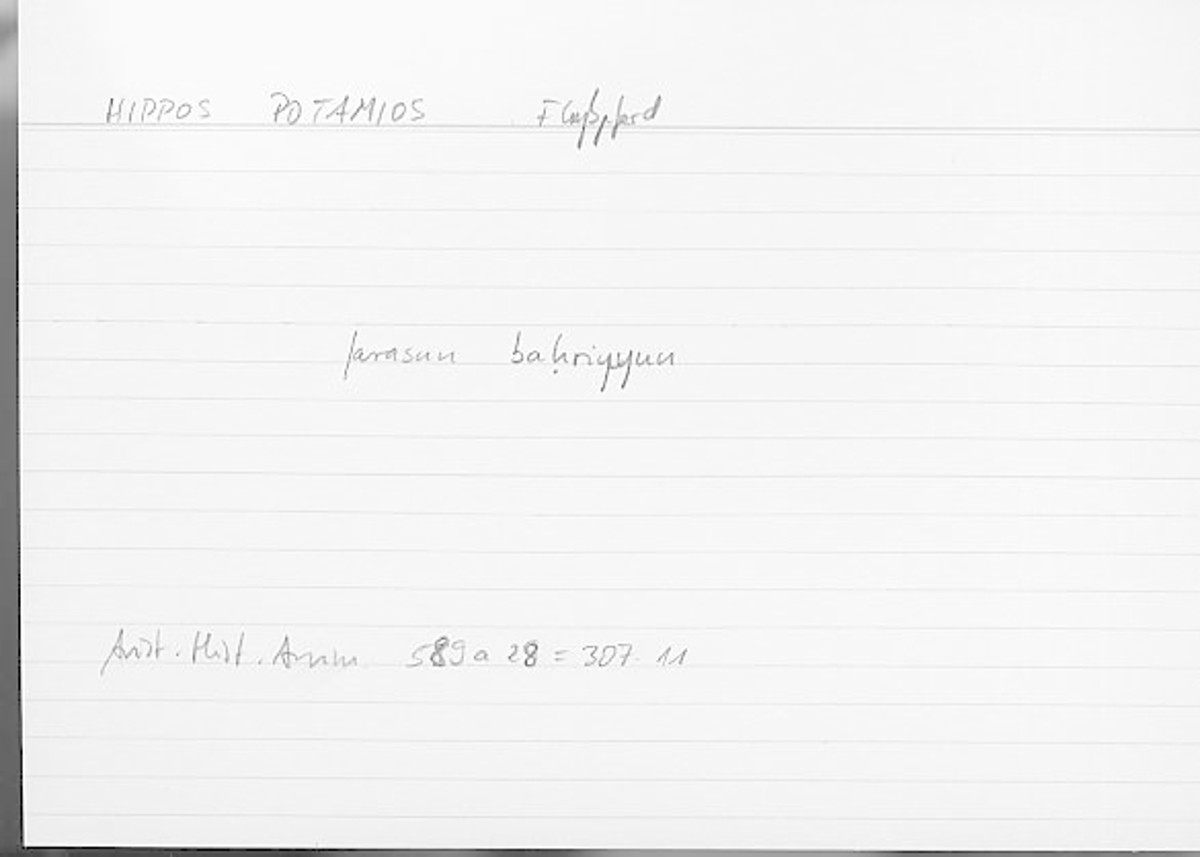 HIPPOS POTAMIOS Flußpferd
farasun baḥriyyun
Arist. Hist. Anim. 589 a 28 = 307. 11